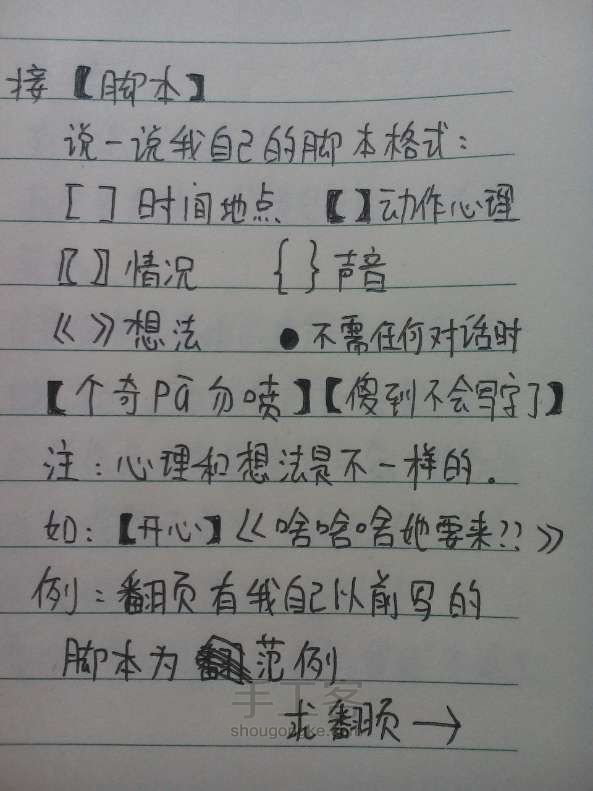 接【脚本】
说一说我自己的脚本格式：
[ ] 时间地点 【 】动作心理
〖 〗情况 { } 声音
《 》想法 ●不需任何对话时
【个奇Pā勿喷】【傻到不会写字了】
注：心理和想法是不一样的.
如：【开心】《啥啥啥她要来??》
例：翻页有我自己以前写的
脚本为 范例
求翻页→
手工客
shougongke.com